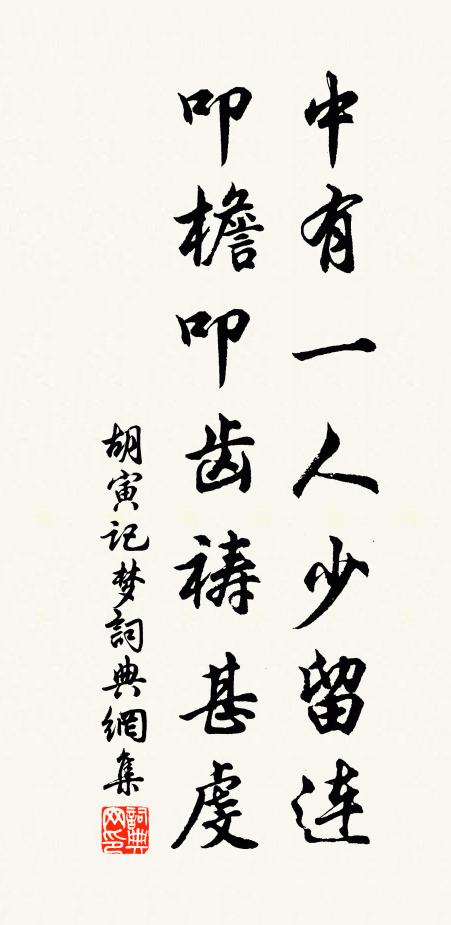 中有一人少留连
叩檐叩齿祷甚虔
胡寅记梦词典網集
詞典网印